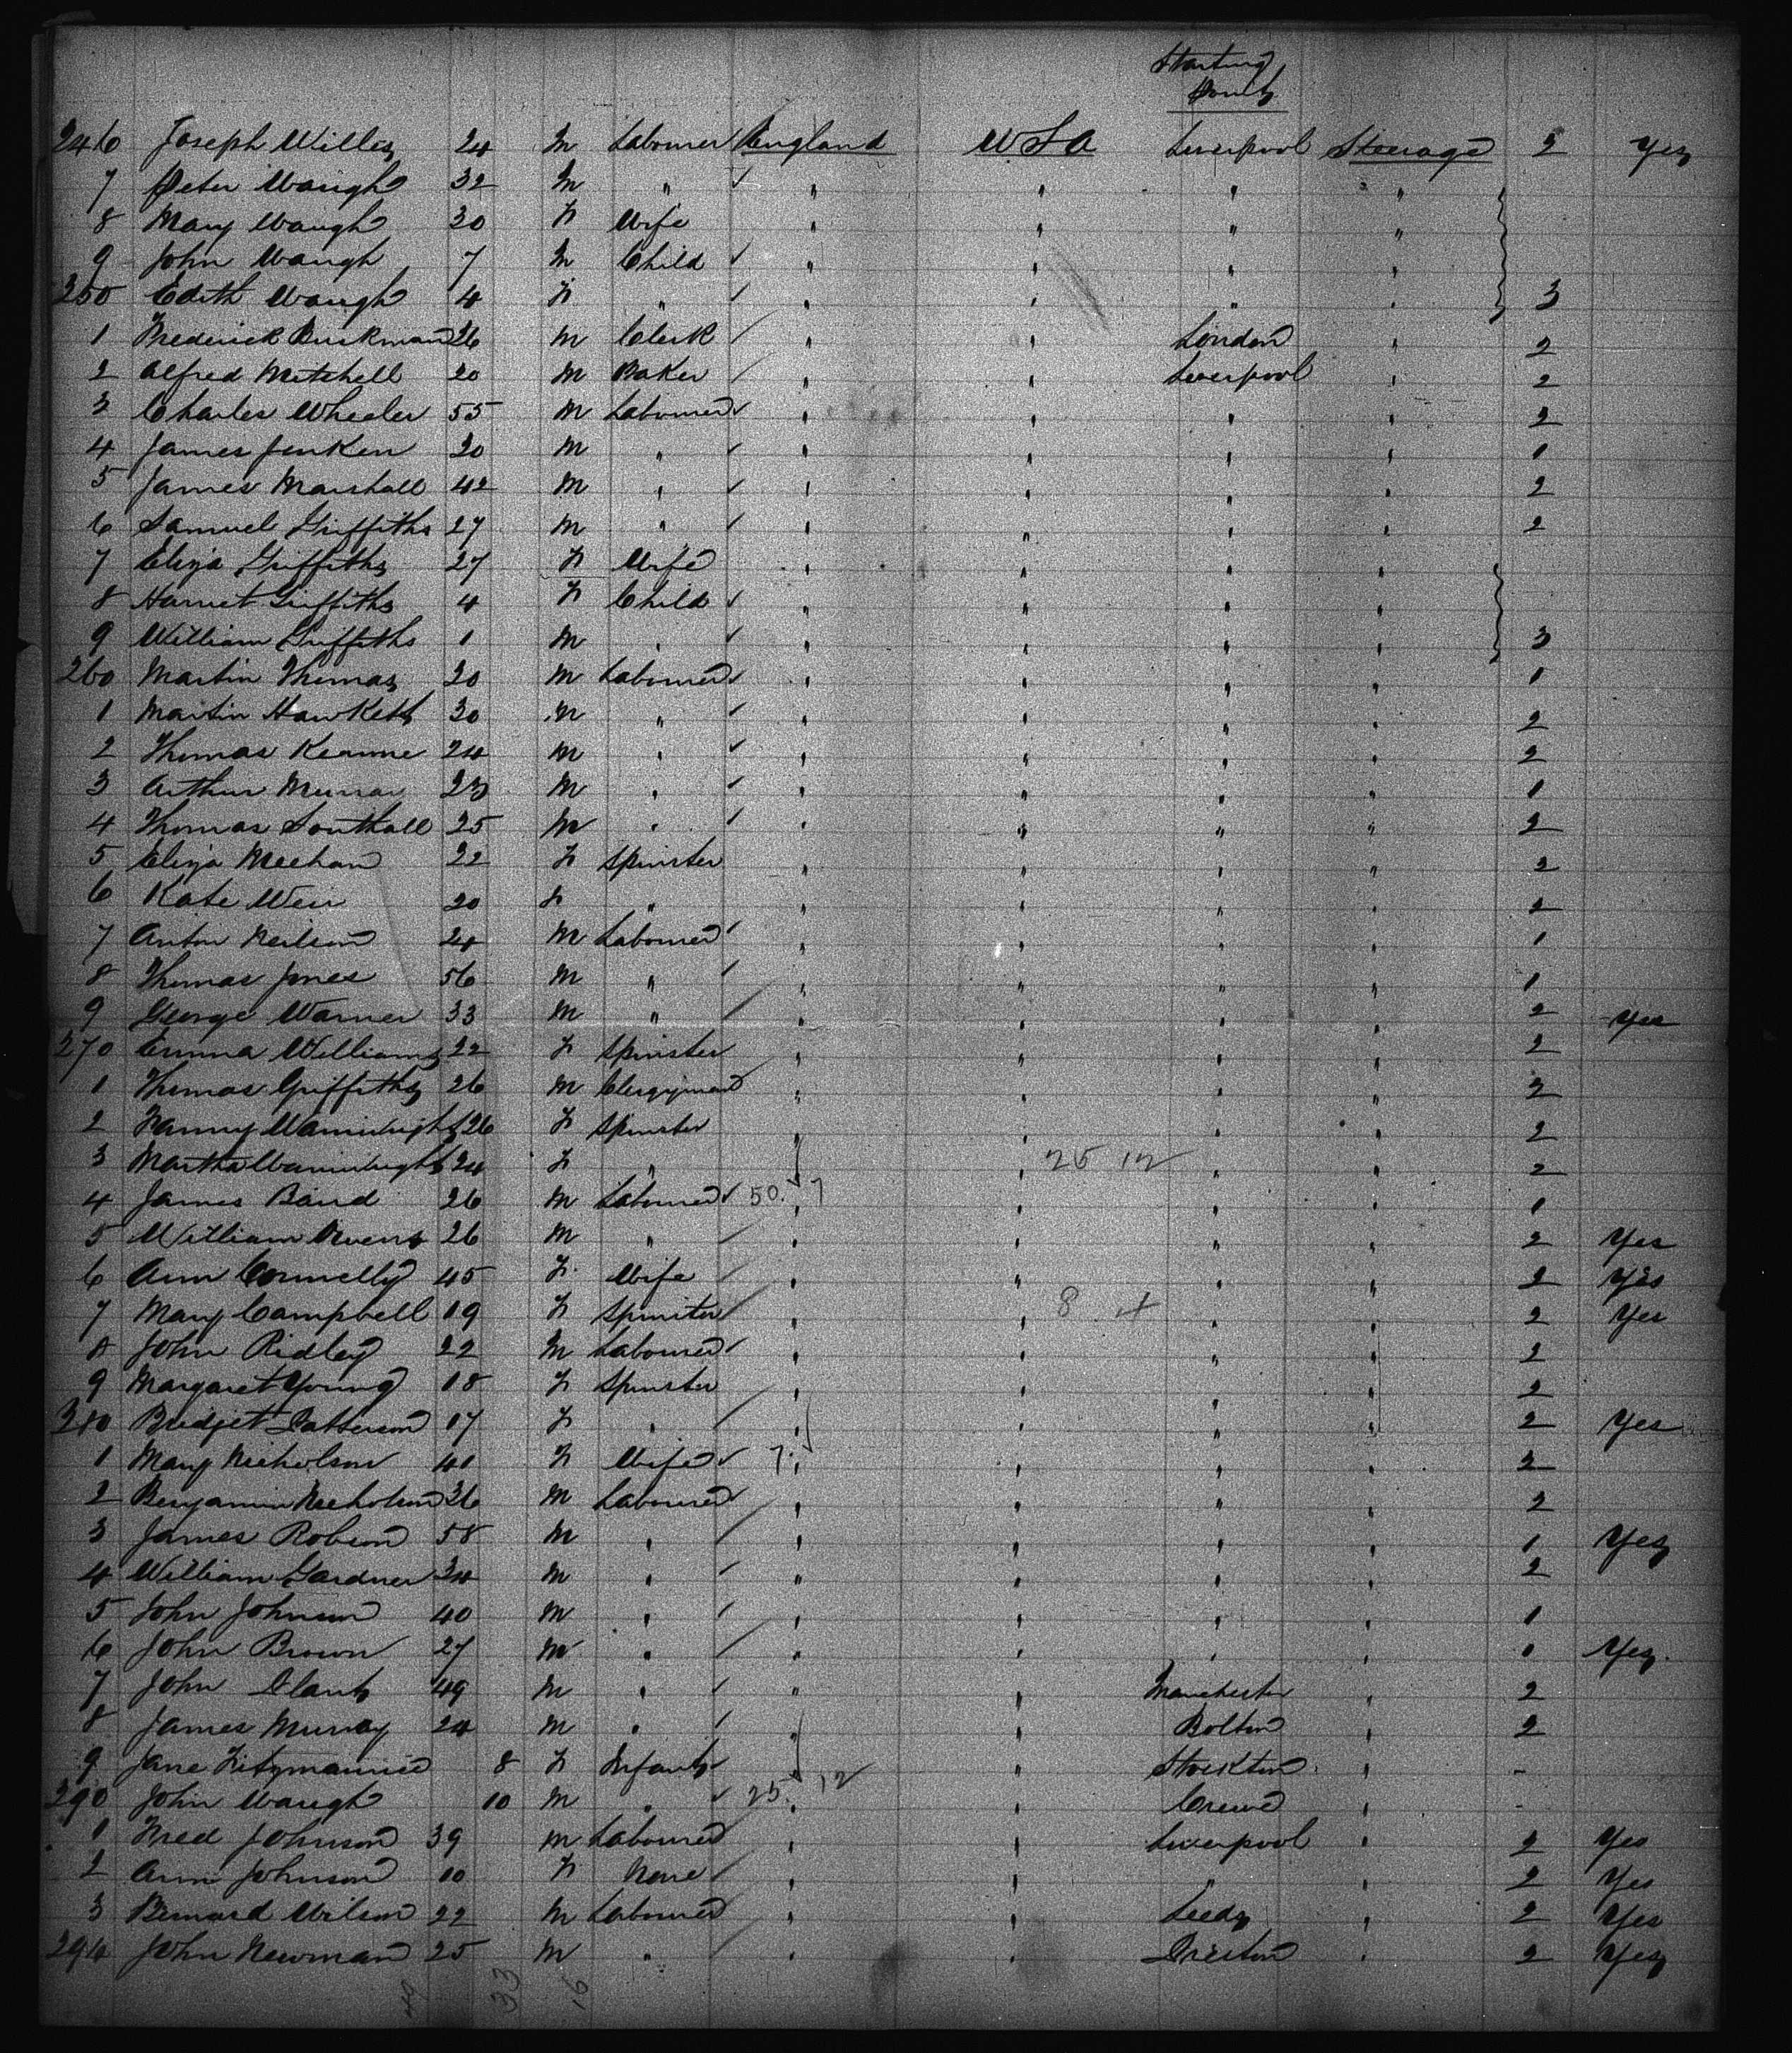 Starting
Point
246 Joseph Willis 24 M Labourer England USA Liverpool Steerage 2 Yes
7 Peter Waugh 32 M " " " " "
8 Mary Waugh 30 F Wife " " " "
9 John Waugh 7 M Child " " " "
250 Edith Waugh 4 F " " " " " 3
1 Frederick 26 M Clerk " " London " 2
2 Alfred Mitchell 20 M Baker " " Liverpool " 2
3 Charles Wheeler 55 M Labourer " " " " 2
4 James Jenken 20 M " " " " " 1
5 James Marshall 42 M " " " " " 2
6 Samuel Griffiths 27 M " " " " " 2
7 Eliza Griffiths 27 F Wife " " " "
8 Harriet Griffiths 4 F Child " " " "
9 William Griffiths 1 M " " " " " 3
260 Martin Thomas 20 M Labourer " " " " 1
1 Martin 30 M " " " " " 2
2 Thomas 24 M " " " " " 2
3 Arthur 23 M " " " " " 1
4 Thomas Southall 25 M " " " " " 2
5 Eliza Meehan 22 F Spinster " " " " 2
6 Kate Weir 20 F " " " " " 2
7 Anton Neilson 24 M Labourer " " " " 1
8 Thomas Jones 56 M " " " " " 1
9 George Warner 33 M " " " " " 2 Yes
270 Emma Williams 22 F Spinster " " " " 2
1 Thomas Griffiths 26 M Clergyman " " " " 2
2 Fanny Wainwright 26 F Spinster " " " " 2
3 Martha Wainwright 24 F " " " 25 12 " " 2
4 James Baird 26 M Labourer 50. 7 " " " " 1
5 William Owens 26 M " " " " " 2 Yes
6 Ann Connelly 45 F Wife " " " " 2 Yes
7 Mary Campbell 19 F Spinster " " 8 4 " " 2 Yes
8 John Ridley 22 M Labourer " " " " 2
9 Margaret Young 18 F Spinster " " " " 2
280 Bridget Patterson 17 F " " " " " 2 Yes
1 Mary Nicholson 41 F Wife 7 " " " " 2
2 Benjamin Nicholson 36 M Labourer " " " " 2
3 James Robson 58 M " " " " " 1 Yes
4 William Gardner 24 M " " " " " 2
5 John Johnson 40 M " " " " " 1
6 John Brown 27 M " " " " " 1 Yes
7 John 49 M " " " Manchester " 2
8 James Murray 24 M " " " Bolton " 2
9 Jane Fitzmaurice 8 F Infant " " Stockton " -
290 John Waugh 10 M " 25. 12 " " Crewe " -
1 Fred Johnson 39 M Labourer " " Liverpool " 2 Yes
2 Ann Johnson 10 F None " " " " 2 Yes
3 Bernard Wilson 22 M Labourer " " Leeds " 2 Yes
294 John Newman 25 M " " " Preston " 2 Yes
33 16